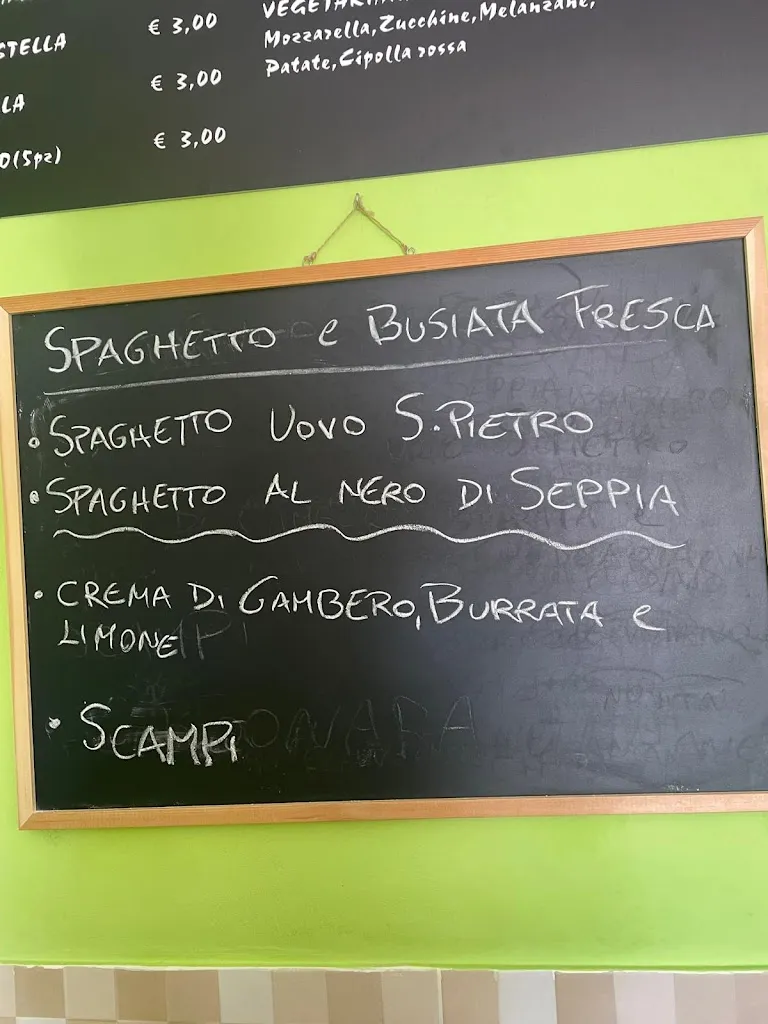 STELLA € 3,00
LA € 3,00
O(5pz) € 3,00
Mozzarella,Zucchine,Melanzane,
Patate,Cipolla rossa
SPAGHETTO e BUSIATA FRESCA
• SPAGHETTO UOVO S.PIETRO
• SPAGHETTO AL NERO DI SEPPIA
• CREMA DI GAMBERO, BURRATA e
LIMONE
• SCAMPI